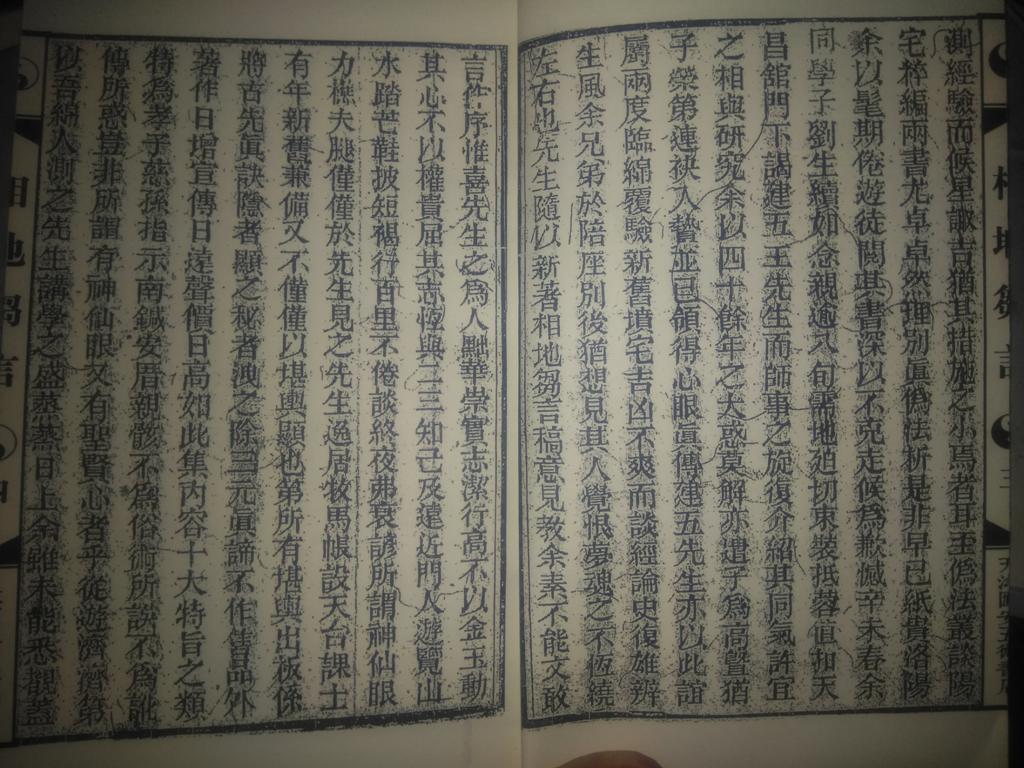 測經驗而候星諏吉猶其措施之小焉者耳至僞法叢談陽
宅粹編兩書尤卓卓然理別眞僞法析是非早已紙貴洛陽
余以髦期倦遊徒閱其書深以不克走候爲歉憾辛未春余
同學子劉生續如念親逾八旬需地廹切束裝抵蓉直扣天
昌舘門下謁建五王先生而師事之旋復介紹其同氣許宜
之相與研究余以四十餘年之大惑莫解亦遣子爲高暨猶
子榮第連袂入贄並已領得心眼眞傳建五先生亦以此誼
屬兩度臨綿覆驗新舊墳宅吉凶不爽而談經論史復雄辨
生風余兄弟於陪座別後猶想見其人覺恨夢魂之不恆繞
左右也先生隨以新著相地芻言稿意見教余素不能文敢
言作序惟喜先生之爲人黜華崇實志潔行高不以金玉動
其心不以權貴屈其志恆與二三知己及遠近門人遊覽山
水踏芒鞋披短褐行百里不倦談終夜弗衰諺所謂神仙眼
力樵夫腿僅僅於先生見之先生過居牧馬帳設天台課士
有年新舊兼備又不僅僅以堪輿顯也第所有堪輿出板係
將古先眞訣隱者顯之秘者洩之除三元眞諦不作售品外
著作日增宣傳日遠聲價日高如此集內容十大特旨之類
特爲孝子慈孫指示南鍼安厝親骸不爲俗術所誤不爲訛
傳所惑豈非所謂有神仙眼又有聖賢心者乎從遊濟濟第
以吾綿人測之先生講學之盛蒸蒸日上余雖未能悉覩蓋
相地芻言
三
相地芻言
四